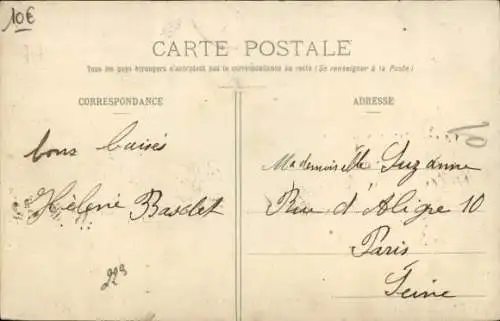 10€
CARTE POSTALE
Tous les pays étrangers n'acceptent pas la correspondance au recto (Se renseigner à la Poste)
CORRESPONDANCE
ADRESSE
bons baisés
Hélène Basolet
Mademoiselle Suzanne
Rue d'Aligre 10
Paris
Seine